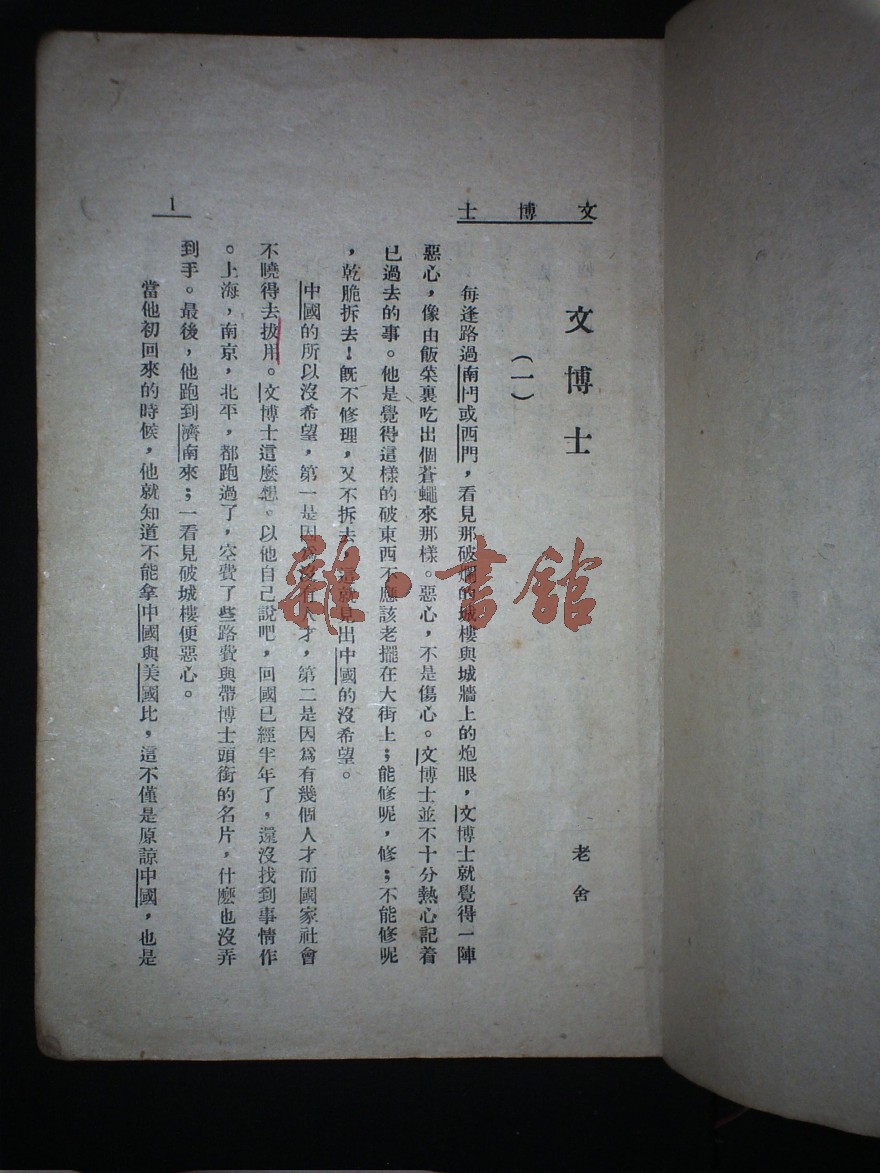 文博士
1
文博士
老舍
（一）
每逢路過南門或西門，看見那破爛的城樓與城牆上的炮眼，文博士就覺得一陣
惡心，像由飯菜裏吃出個蒼蠅來那樣。惡心，不是傷心。文博士並不十分熱心記着
已過去的事。他是覺得這樣的破東西不應該老擺在大街上；能修呢，修；不能修呢
，乾脆拆去！旣不修理，又不拆去，這就見出中國的沒希望。
中國的所以沒希望，第一是因爲沒有人才，第二是因爲有幾個人才而國家社會
不曉得去拔用。文博士這麼想。以他自己說吧，回國已經半年了，還沒找到事情作
。上海，南京，北平，都跑過了，空費了些路費與帶博士頭銜的名片，什麼也沒弄
到手。最後，他跑到濟南來；一看見破城樓便惡心。
當他初回來的時候，他就知道不能拿中國與美國比，這不僅是原諒中國，也是
雜·書館